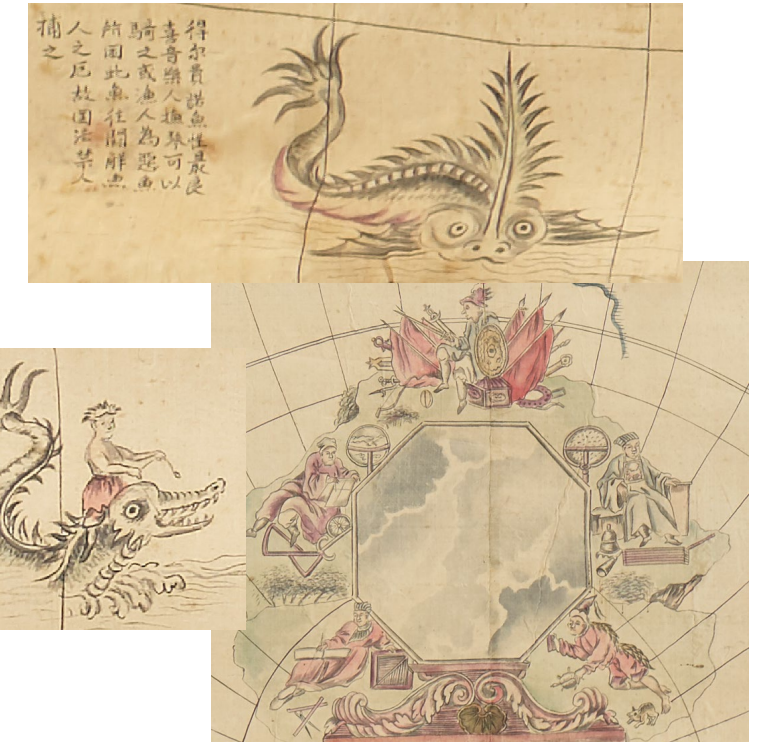 得尔貴諾魚性最良
喜音樂人撫琴可以
騎之或漁人為惡魚
所困此魚往鬪解漁
人之厄故國法禁人
捕之